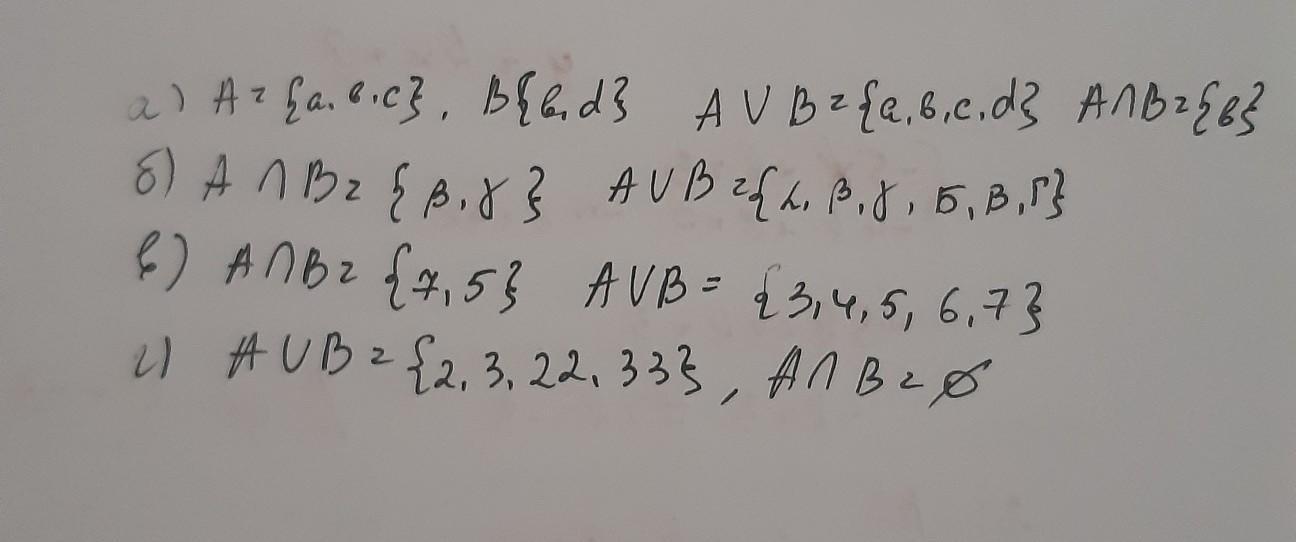 а) A = {a, в, c}, B{в, d} A ∪ B = {a, в, c, d} A∩B = {в}
б) A ∩ B = {β, γ} A∪B = {α, β, γ, Б, В, Г}
в) A∩B = {7, 5} A∪B = {3, 4, 5, 6, 7}
г) A∪B = {2, 3, 22, 33}, A∩B = ∅